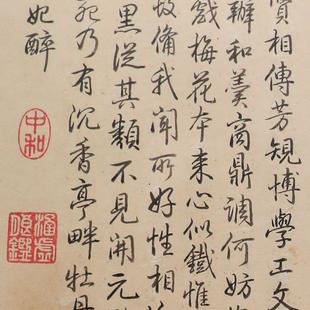 相傳芳規博學工文
辦和羹商鼎調何妨
戲梅花本來心似鐵惟
備我聞所好性相
黑從其類不見開元
乃有沉香亭畔牡丹
妃醉
中和